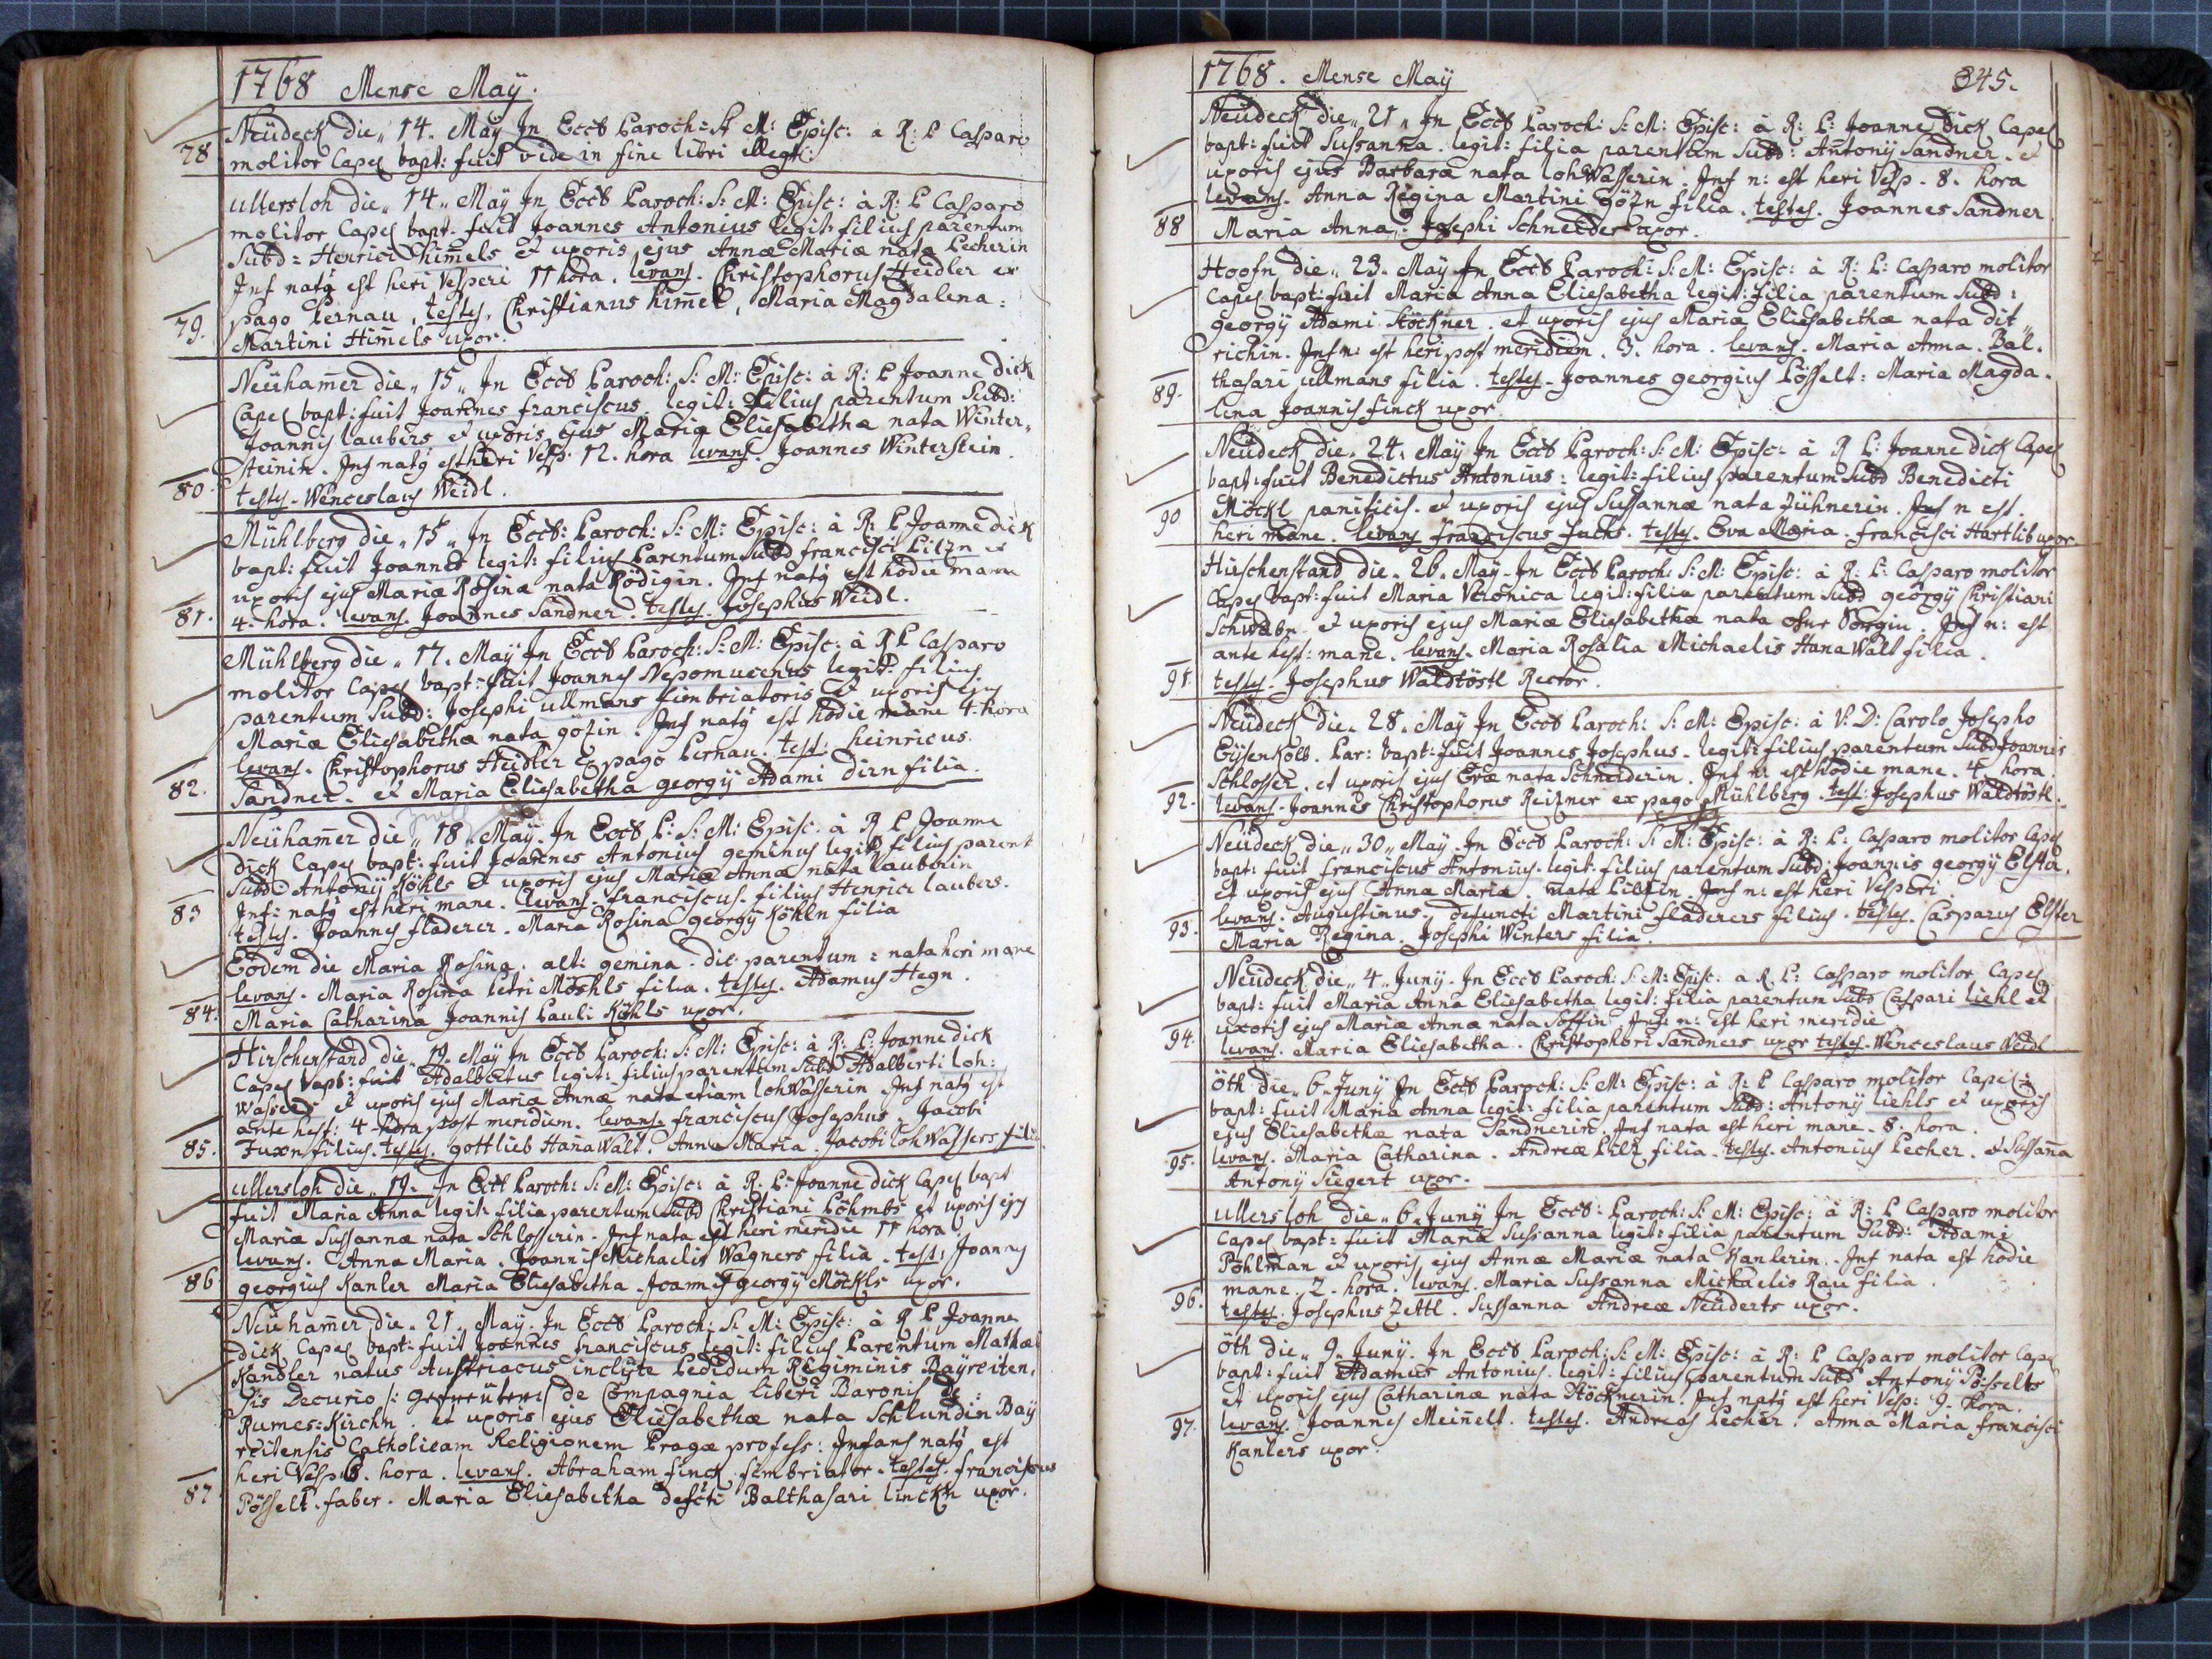 1768 Mense Maÿ.
Neüdeck die„ 14. Maÿ Jn Eccle Paroch: S: M: Episc: a R: P Casparo
78 molitor Capel bapt: fuit vide in fine libri illegit:
ullersloh die„ 14„ Maÿ Jn Eccle Paroch: S: M: Episc: à R: P Casparo
molitor Capel bapt. fuit Joannes Antonius legit: filius parentum
Subd: Henrici Him̃els et uxoris ejus Annæ Mariæ nata Pecherin
Jnf natq est heri Vesperi 11 hora. levans. Christophorus Heidler ex
pago Pernau, testes, Christianus him̃el, Maria Magdalena:
79. Martini Him̃els uxor.
Neüham̃er die„ 15„ Jn Eccle Paroch: S: M: Episc: à R: P Joanne dick
Capel bapt: fuit Joannes franciscus. legit: filius parentum Subd:
Joannis laubers et uxoris ejus Mariæ Eliesabethæ nata Winter„
Steinin. Jnf natq est heri Vesp. 12. hora levans. Joannes Winterstein.
80. testes. Wenceslaus Weidl.
Mühlberg die„ 15„ Jn Eccle: Paroch: S: M: Episc: à R: P Joanne dick
bapt: fuit Joannes legit: filius Parentum Subd francisci Pilzn et
uxoris ejus Mariæ Rosinæ nata Rödigin. Jnf natq est hodie mane
81. 4. hora. levans. Joannes Sandner. testes. Josephus Weidl.
Mühlberg die„ 17. Maÿ Jn Eccle Paroch: S: M: Episc: à R P Casparo
molitor Capel bapt: fuit Joannes Nepomucenus legit: filius
parentum Subd: Josephi ullmans fimbriatoris et uxoris ejus
Mariæ Eliesabethæ nata götzin. Jnf natq est hodie mane 4. hora
levans. Christophorus Heidler ex pago Pernau. test: heinricus
82. Sandner. et Maria Eliesabetha georgÿ Adami dirn filia.
Neüham̃er die„ 18„ Maÿ. Jn Eccle P: S: M: Episc: à R P Joanne
dick Capel bapt: fuit Joannes Antonius geminus legit: filius parent
Subd: Antonÿ Köhls et uxoris ejus Mariæ Annæ nata lauberin
83 Jnf: natq est heri mane. levans. franciscus. filius Henrici laubers.
testes. Joannes fladerer. Maria Rosina georgÿ Köhln filia
Eodem die Maria Rosina. alt: gemina. dic: parentum: nata heri mane
levans. Maria Rosina Petri Möshls filia. testes. Adamus Hegn.
84. Maria Catharina Joannis Pauli Köhls uxor.
Hirschenstand die„ 19. Maÿ Jn Eccle Paroch: S: M: Episc: à R: P: Joanne dick
Capel bapt: fuit Adalbertus legit: filius parentum Subd Adalberti loh:
Wassers et uxoris ejus Mariæ Annæ nata etiam lohWasserin Jnf natq est
ante hest: 4 hora post meridiem. levans. franciscus Josephus. Jacobi
85. Fuxn filius. testes. gottlieb HañaWalt. Anna Maria. Jacobi lohWassers filia
ullersloh die„ 19. Jn Eccle Paroch: S: M: Episc: à R: P: Joanne dick Capel bapt
fuit Maria Anna legit: filia parentum Subd Christiani Böhmbs et uxoris ejq
Mariæ Susannæ nata Schlosserin. Jnf nata est heri meridie 11 hora
levans. Anna Maria. Joannis Michaelis Wagners filia. test: Joannes
86 georgius Kanler Maria Eliesabetha. Joannis georgÿ Möckls uxor.
Neüham̃er die. 21. Maÿ. Jn Eccle Paroch: S: M: Episc: à R P Joanne
dick Capel bapt: fuit Joannes franciscus legit: filius Parentum Mathæi
Kandler natus Austriacus inclyte Pedidum Regiminis Baÿreiten„
sis Decurio /: gefreüters de Compagnia liberi Baronis de:
Rumes=Kirchn. et uxoris ejus Eliesabethæ nata Schlundin Baÿ
reitensis Catholicam Religionem Pragæ profess: Jnfans natq est
heri Vesp. 8. hora. levans. Abraham finck fimbriator. testes. franciscus
87. Pösselt. faber. Maria Eliesabetha defcti Balthasari linckn uxor.
1768. Mense Maÿ 345.
Neüdeck die„ 21„ Jn Eccle Paroch: S: M: Episc: à R: P: Joanne Dick Capel
bapt: fuit Susanna. legit: filia parentum Subd: Antonÿ Sandner. et
uxoris ejus Barbara nata lohWasserin. Jnf n: est heri Vesp. 8. hora
levans. Anna Regina Martini götzn filia. testes. Joannes Sandner
88 Maria Anna. Josephi Schneider uxor.
Hoofn die„ 23. Maÿ Jn Eccle Paroch: S: M: Episc: à R: P: Casparo molitor
Capel bapt: fuit Maria Anna Eliesabetha legit: filia parentum Subd:
georgÿ Adami Stöckner. et uxoris ejus Mariæ Eliesabethæ nata dit„
richin. Jnf n: est heri post meridiem. 3. hora. levans. Maria Anna. Bal.
89. thasari ullmans filia. testes. Joannes georgius Pösselt: Maria Magda.
lena Joannis finck uxor.
Neüdeck die. 24. Maÿ Jn Eccle Paroch: S: M: Episc: à R P: Joanne dick Capel
bapt: fuit Benedictus Antonius: legit: filius parentum Subd Benedicti
90 Möckl panificis. et uxoris ejus Susannæ nata Zühnerin. Jnf n est.
heri mane. levans franciscus fuchs. testes. Eva Maria. francisci Hartlib uxor.
Hirschenstand die. 26. Maÿ. Jn Eccle Paroch: S: M: Episc: à R: P: Casparo molitor
Capel bapt: fuit Maria Veronica legit: filia parentum Subd georgÿ Christiani
Schwabn et uxoris ejus Mariæ Eliesabethæ nata Jnf n: est
ante hest: mane. levans. Maria Rosalia Michaelis HanaWalt filia.
91. testes. Josephus Waldtöstl Rector.
Neüdeck die. 28. Maÿ Jn Eccle Paroch: S: M: Episc: à V: D: Carolo Josepho
Eÿsenkolb. Par: bapt: fuit Joannes Josephus. legit: filius parentum Subd Joannis
Schlosser. et uxoris ejus Evæ nata Schneiderin. Jnf n: est hodie mane. 4. hora.
92. levans. Joannes Christophorus Reizner ex pago Mühlberg. test: Josephus Waldtöstl.
Neüdeck die„ 30„ Maÿ. Jn Eccle Paroch: S: M: Episc: à R: P: Casparo molitor Capel
bapt: fuit franciscus Antonius. legit: filius parentum Subd: Joannis georgÿ Elsta.
et uxoris ejus Anna Maria. nata Jnf n: est heri Vesperi
93. levans. Augustinus. defuncti Martini fladerers filius. testes. Casparus Elster
Maria Regina. Josephi Winters filia.
Neüdeck die„ 4„ Junÿ. Jn Eccle Paroch: S: M: Episc: a R. P: Casparo molitor Capel
bapt: fuit Maria Anna Eliesabetha legit: filia parentum Subd Caspari liehl et
uxoris ejus Mariæ Annæ nata Soffin. Jnf: n: est heri meridie
94. levans. Maria Eliesabetha. Christophori Sandners uxor testes. Wenceslaus Weidl
Öth die„ 6„ Junÿ Jn Eccle Paroch: S: M: Episc: à R: P Casparo molitor Capel:
bapt: fuit Maria Anna legit: filia parentum Subd: Antonÿ liehls et uxoris
ejus Eliesabethæ nata Sandnerin. Jnf nata est heri mane. 8. hora.
95. levans. Maria Catharina. Andreæ Pilz filia. testes. Antonius Pecher. et Susaña
Antonÿ Siegert uxor.
ullersloh die„ 6„ Junÿ Jn Eccle: Paroch: S: M: Episc: à R: P Casparo molitor
Capel bapt: fuit Maria Susanna legit: filia parentum Subd: Adami
Pöhlman et uxoris ejus Annæ Mariæ nata Kanlerin. Jnf nata est hodie
mane. 2. hora. levans. Maria Susanna Michaelis Rau filia.
96. testes. Josephus Zettl. Susanna Andreæ Neüderts uxor.
Öth die„ 9„ Junÿ. Jn Eccle Paroch: S: M: Episc: à R: P Casparo molitor Capel
bapt: fuit Adamus Antonius. legit: filius parentum Subd Antonÿ Pösselts
et uxoris ejus Catharinæ nata Stöcknerin. Jnf natq est heri Vesp: 9. hora.
97. levans. Joannes Meiñelt. testes. Andreas Pecher. Anna Maria francisci
Kanlers uxor.